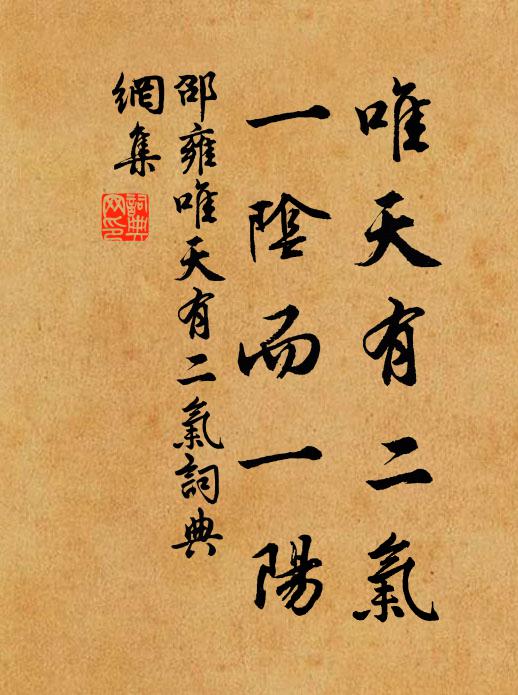 唯天有二氣
一陰而一陽
邵雍唯天有二氣詞典
網集
詞典
网印